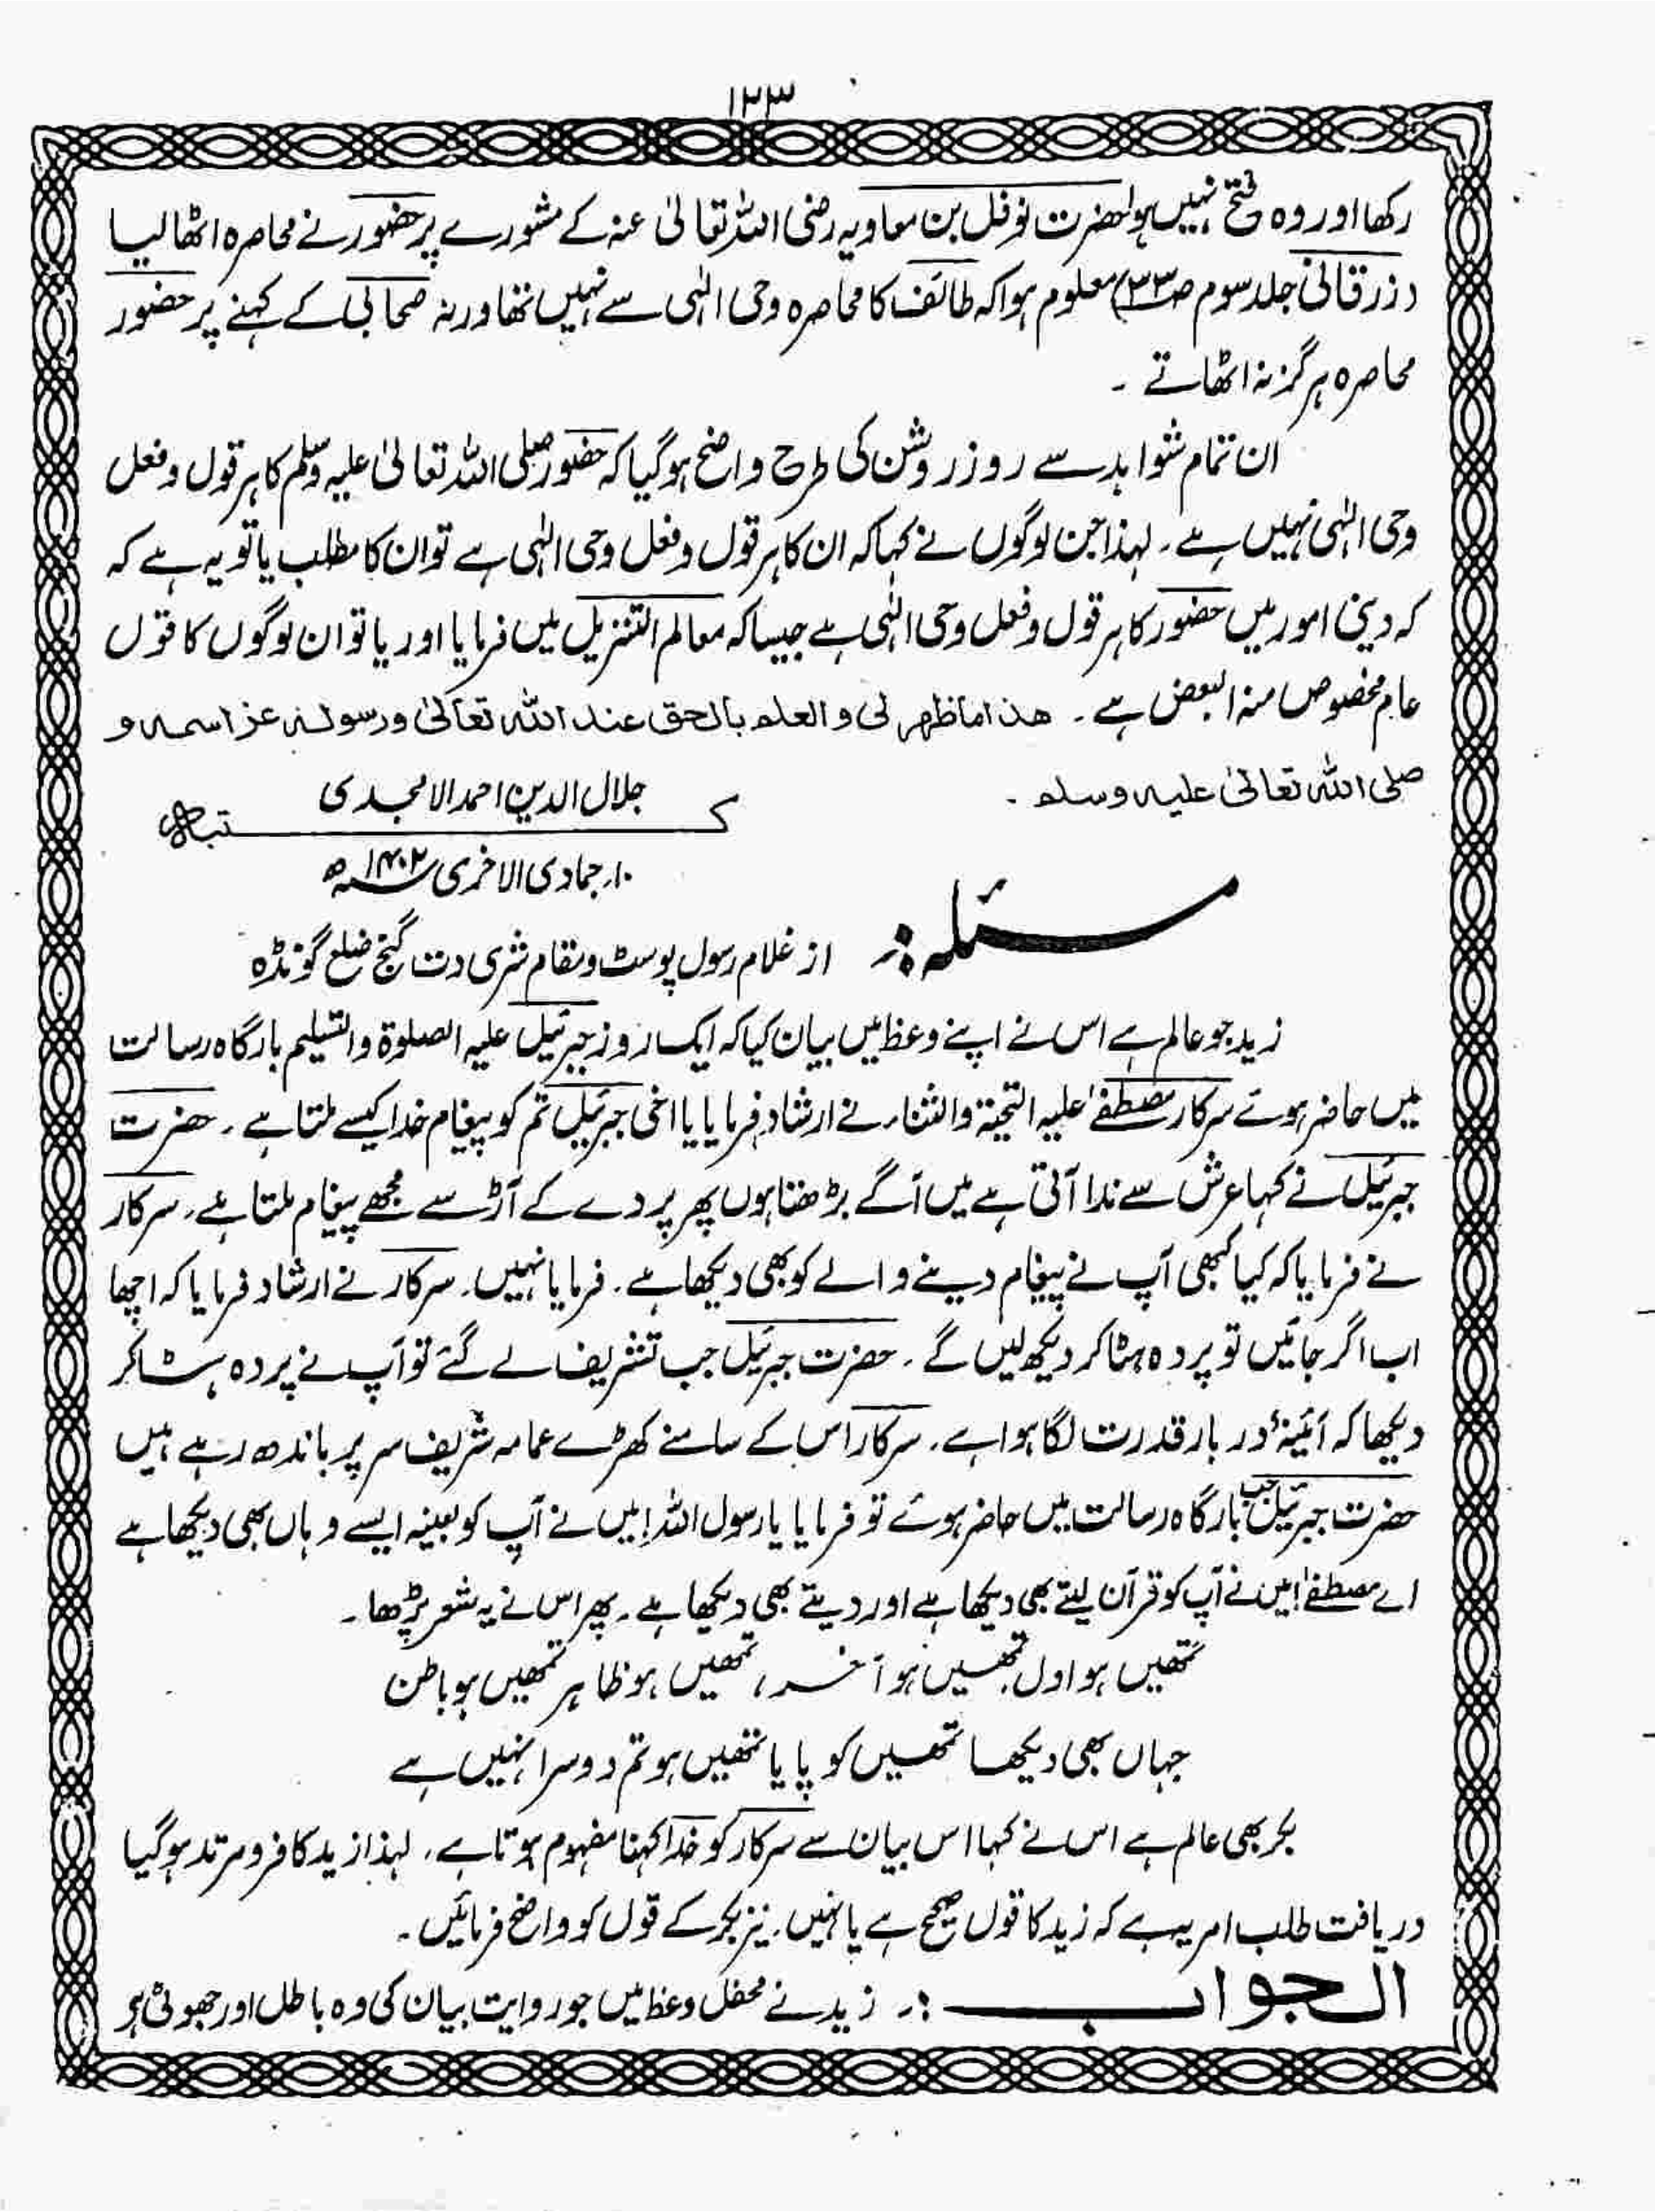 ۱۲۳
رکھا اور وہ فتح نہیں ہوا حضرت نوفل بن معاویہ رضی اللہ تعالیٰ عنہ کے مشورے پر حضور نے محاصرہ اٹھالیا
(زرقانی جلد سوم ص۳۳) معلوم ہوا کہ طائف کا محاصرہ وحی الٰہی سے نہیں تھا ورنہ صحابی کے کہنے پر حضور
محاصرہ ہرگز نہ اٹھاتے ۔
ان تمام شواہد سے روز روشن کی طرح واضح ہوگیا کہ حضور صلی اللہ تعالیٰ علیہ وسلم کا ہر قول و فعل
وحی الٰہی نہیں ہے ۔ لہذا جن لوگوں نے کہا کہ ان کا ہر قول و فعل وحی الٰہی ہے تو ان کا مطلب یا تو یہ ہے کہ
کہ دینی امور میں حضور کا ہر قول و فعل وحی الٰہی ہے جیسا کہ معالم التنزیل میں فرمایا اور یا تو ان لوگوں کا قول
عام مخصوص منہ البعض ہے ۔ ھذا ما ظھر لی و العلم بالحق عند اللہ تعالیٰ ورسولہ عز اسمہ و
صلی اللہ تعالیٰ علیہ وسلم ۔
جلال الدین احمد الامجدی
کتبہ
۱۰؍ جمادی الاخری ۱۴۰۲ھ
مسئلہ :۔ از غلام رسول پوسٹ و مقام شری دت گنج ضلع گونڈہ
زید جو عالم ہے اس نے اپنے وعظ میں بیان کیا کہ ایک روز جبرئیل علیہ الصلوۃ والتسلیم بارگاہ رسالت
میں حاضر ہوئے سرکار مصطفےٰ علیہ التحیۃ والثناء نے ارشاد فرمایا یا اخی جبرئیل تم کو پیغام خدا کیسے ملتا ہے ۔ حضرت
جبرئیل نے کہا عرش سے ندا آتی ہے میں آگے بڑھتا ہوں پھر پردے کے آڑ سے مجھے پیغام ملتا ہے ۔ سرکار
نے فرمایا کہ کیا کبھی آپ نے پیغام دینے والے کو بھی دیکھا ہے ۔ فرمایا نہیں ۔ سرکار نے ارشاد فرمایا کہ اچھا
اب اگر جائیں تو پردہ ہٹا کر دیکھ لیں گے ۔ حضرت جبرئیل جب تشریف لے گئے تو آپ نے پردہ ہٹا کر
دیکھا کہ آئینۂ دربار قدرت لگا ہوا ہے ۔ سرکار اس کے سامنے کھڑے عمامہ شریف سر پر باندھ رہے ہیں
حضرت جبرئیل جب بارگاہ رسالت میں حاضر ہوئے تو فرمایا یا رسول اللہ! میں نے آپ کو بعینہ ایسے وہاں بھی دیکھا ہے
اے مصطفےٰ! میں نے آپ کو قرآن لیتے بھی دیکھا ہے اور دیتے بھی دیکھا ہے ۔ پھر اس نے یہ شعر پڑھا ۔
تمھیں ہو اول تمھیں ہو آخر ، تمھیں ہو ظاہر تمھیں ہو باطن
جہاں بھی دیکھا تمھیں کو پایا تمھیں ہو تم دوسرا نہیں ہے
بکر بھی عالم ہے اس نے کہا اس بیان سے سرکار کو خدا کہنا مفہوم ہوتا ہے ۔ لہذا زید کافر و مرتد ہوگیا
دریافت طلب امر یہ ہے کہ زید کا قول صحیح ہے یا نہیں ۔ نیز بکر کے قول کو واضح فرمائیں ۔
الجواب :۔ زید نے محفل وعظ میں جو روایت بیان کی وہ باطل اور جھوٹی ہے